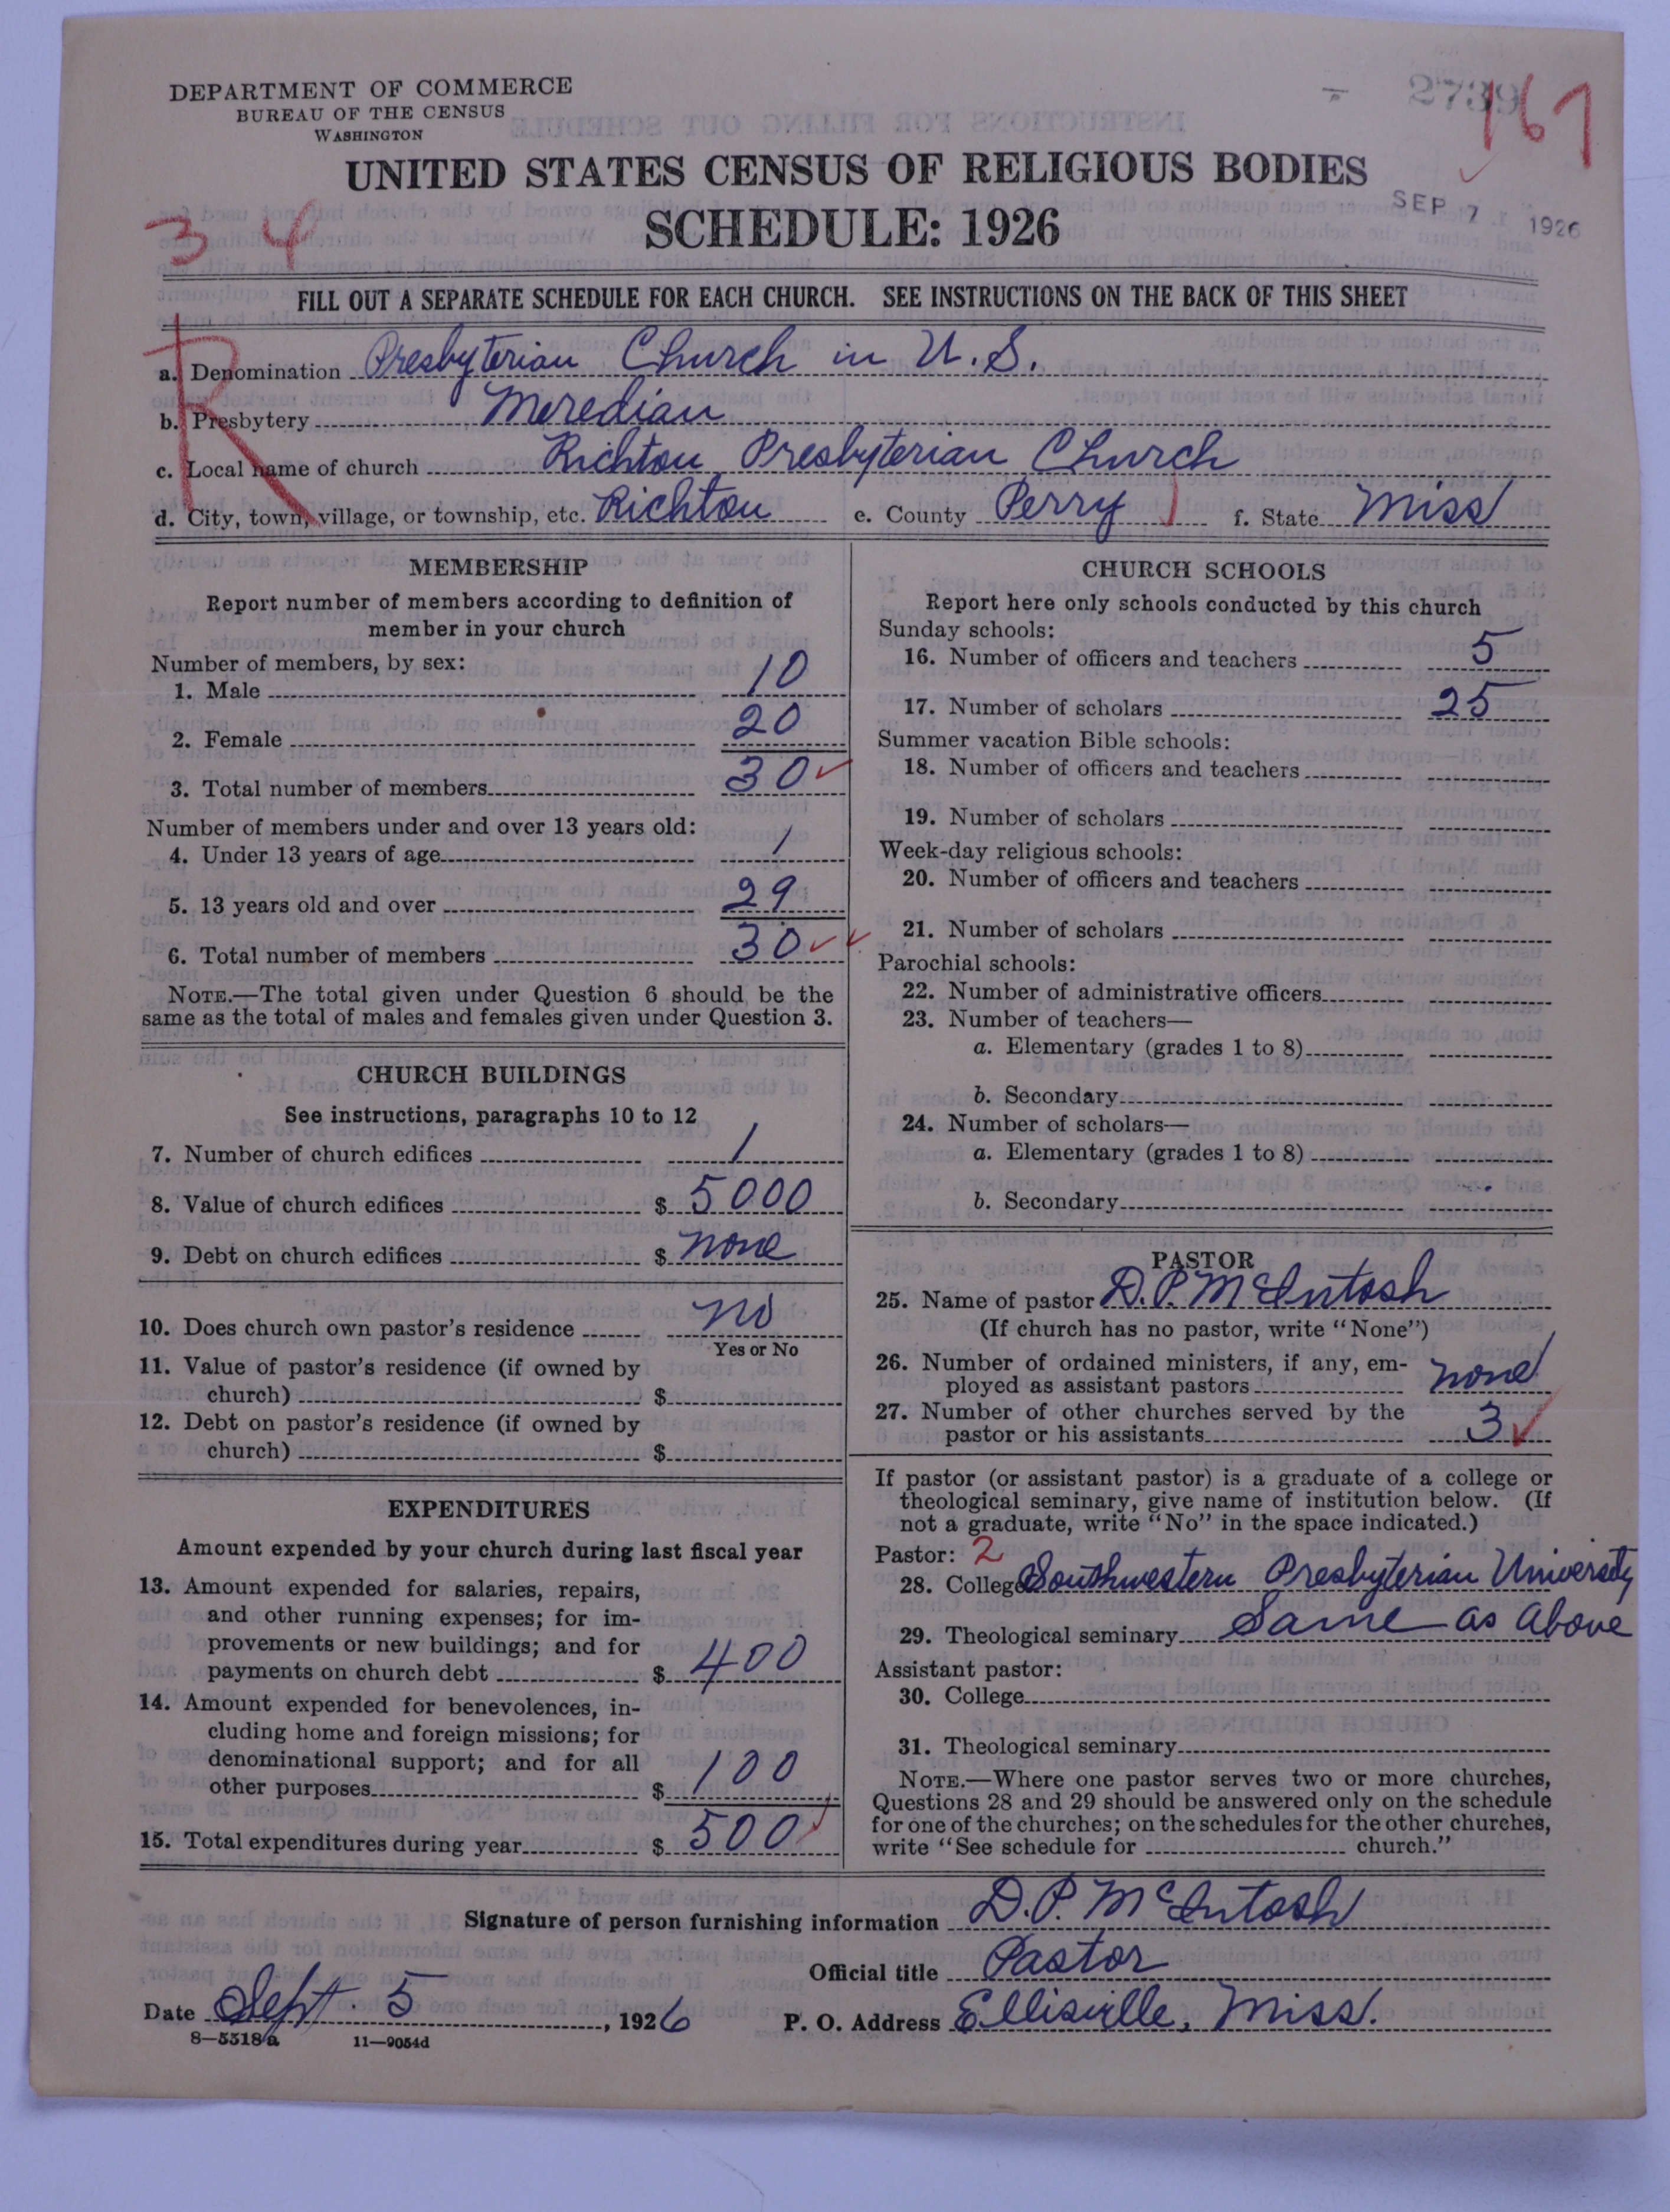 DEPARTMENT OF COMMERCE
BUREAU OF THE CENSUS
WASHINGTON
2739
167
UNITED STATES CENSUS OF RELIGIOUS BODIES
SEP 7 1926
3 4
SCHEDULE: 1926
FILL OUT A SEPARATE SCHEDULE FOR EACH CHURCH. SEE INSTRUCTIONS ON THE BACK OF THIS SHEET
R
a. Denomination Presbyterian Church in U.S.
b. Presbytery Meredian
c. Local name of church Richton Presbyterian Church
d. City, town, village, or township, etc. Richton e. County Perry f. State Miss
MEMBERSHIP
Report number of members according to definition of
member in your church
Number of members, by sex:
1. Male 10
2. Female 20
3. Total number of members 30
Number of members under and over 13 years old:
4. Under 13 years of age 1
5. 13 years old and over 29
6. Total number of members 30
NOTE.—The total given under Question 6 should be the
same as the total of males and females given under Question 3.
CHURCH BUILDINGS
See instructions, paragraphs 10 to 12
7. Number of church edifices 1
8. Value of church edifices $ 5000
9. Debt on church edifices $ none
10. Does church own pastor's residence no
Yes or No
11. Value of pastor's residence (if owned by
church) $
12. Debt on pastor's residence (if owned by
church) $
EXPENDITURES
Amount expended by your church during last fiscal year
13. Amount expended for salaries, repairs,
and other running expenses; for im-
provements or new buildings; and for
payments on church debt $ 400
14. Amount expended for benevolences, in-
cluding home and foreign missions; for
denominational support; and for all
other purposes $ 100
15. Total expenditures during year $ 500
CHURCH SCHOOLS
Report here only schools conducted by this church
Sunday schools:
16. Number of officers and teachers 5
17. Number of scholars 25
Summer vacation Bible schools:
18. Number of officers and teachers
19. Number of scholars
Week-day religious schools:
20. Number of officers and teachers
21. Number of scholars
Parochial schools:
22. Number of administrative officers
23. Number of teachers—
a. Elementary (grades 1 to 8)
b. Secondary
24. Number of scholars—
a. Elementary (grades 1 to 8)
b. Secondary
PASTOR
25. Name of pastor D.P. McIntosh
(If church has no pastor, write "None")
26. Number of ordained ministers, if any, em-
ployed as assistant pastors none
27. Number of other churches served by the
pastor or his assistants 3
If pastor (or assistant pastor) is a graduate of a college or
theological seminary, give name of institution below. (If
not a graduate, write "No" in the space indicated.)
Pastor: 2
28. College Southwestern Presbyterian University
29. Theological seminary Same as above
Assistant pastor:
30. College
31. Theological seminary
NOTE.—Where one pastor serves two or more churches,
Questions 28 and 29 should be answered only on the schedule
for one of the churches; on the schedules for the other churches,
write "See schedule for church."
Signature of person furnishing information D.P. McIntosh
Official title Pastor
Date Sept. 5, 1926 P. O. Address Ellisville, Miss.
8—5518a 11—9054d